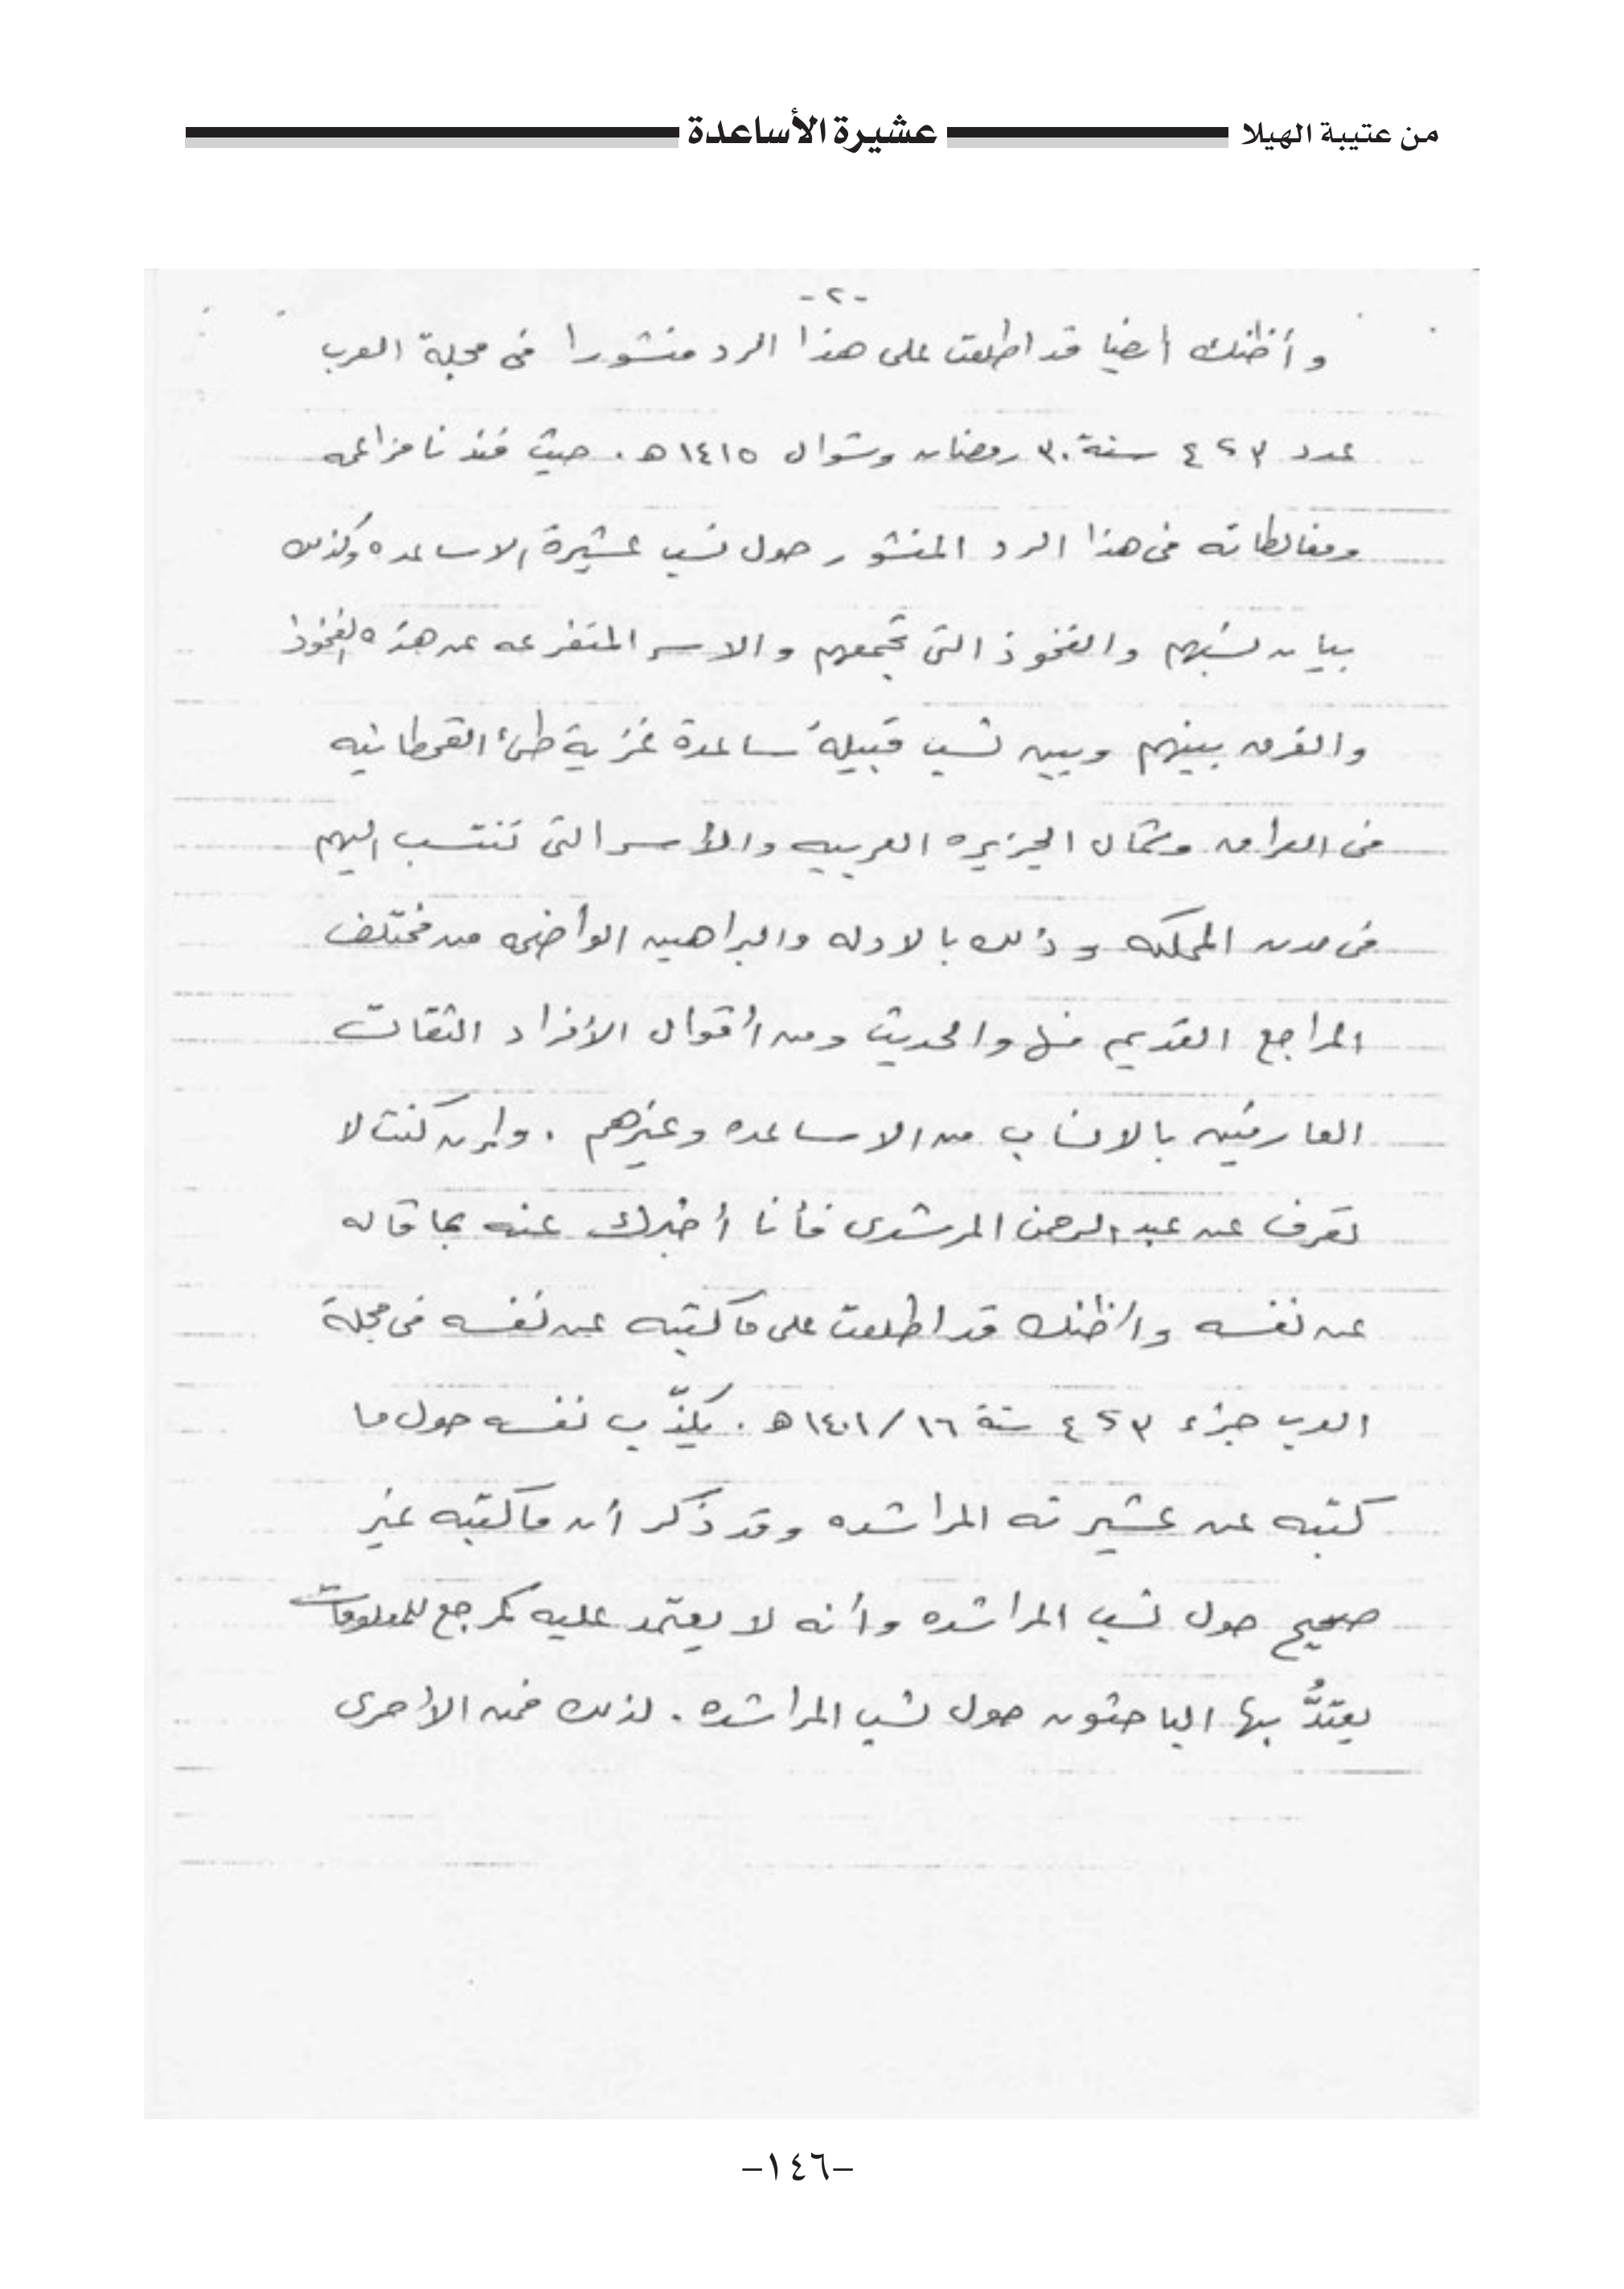 من عتيبة الهيلا عشيرة الأساعدة
-٢-
وأظنك أيضا قد اطلعت على هذا الرد منشورا في مجلة العرب
عدد ٣ و ٤ سنة ٣٠ رمضان وشوال ١٤١٥ هـ . حيث فندنا مزاعمه
ومغالطاته في هذا الرد المنشور حول نسب عشيرة الاساعده وكذلك
بيان نسبهم والفخوذ التي تجمعهم والاسر المتفرعه عن هذه الفخوذ
والفرق بينهم وبين نسب قبيلة ساعدة غزية طيء القحطانيه
في العراق وشمال الجزيره العربيه والأسر التي تنتسب اليهم
في مدن المملكه وذلك بالادله والبراهين الواضحه من مختلف
المراجع القديم منها والحديث ومن أقوال الأفراد الثقات
العارفين بالانساب من الاساعده وغيرهم . وإن كنت لا
تعرف عن عبدالرحمن المرشدي فأنا أخبرك عنه بما قاله
عن نفسه وأظنك قد اطلعت على ما كتبه عن نفسه في مجلة
العرب جزء ٣ و ٤ سنة ١٦/ ١٤٠١ هـ . يكذّب نفسه حول ما
كتبه عن عشيرته المراشده وقد ذكر أن ما كتبه غير
صحيح حول نسب المراشده وأنه لا يعتمد عليه كمرجع للمعلومات
يعتدُّ بها الباحثون حول نسب المراشده . لذلك فمن الأحرى
-١٤٦-